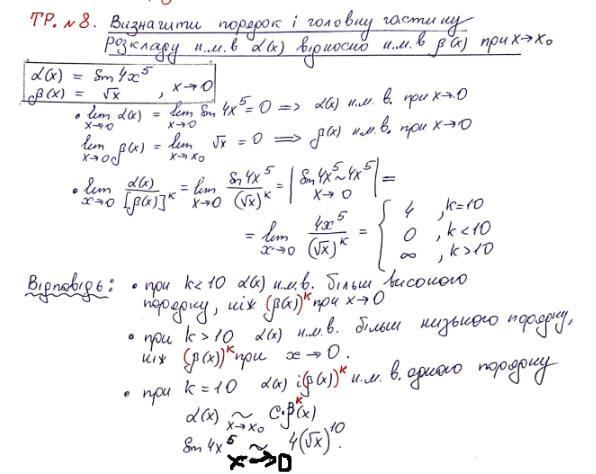 ТР. №8. Визначити порядок і головну частину
розкладу н.м.в α(x) відносно н.м.в β(x) при x→x₀
α(x) = sin 4x⁵
β(x) = √x , x→0
• lim x→0 α(x) = lim x→0 sin 4x⁵ = 0 => α(x) н.м.в. при x→0
lim x→0 β(x) = lim x→x₀ √x = 0 => β(x) н.м.в. при x→0
• lim x→0 α(x)/[β(x)]ᵏ = lim x→0 sin 4x⁵/(√x)ᵏ = | sin 4x⁵ ~ 4x⁵ x→0 | =
= lim x→0 4x⁵/(√x)ᵏ = { 4 , k=10
0 , k<10
∞ , k>10
Відповідь: • при k<10 α(x) н.м.в. більш високого
порядку, ніж (β(x))ᵏ при x→0
• при k>10 α(x) н.м.в. більш низького порядку,
ніж (β(x))ᵏ при x→0.
• при k=10 α(x) і (β(x))ᵏ н.м.в. одного порядку
α(x) ~ x→x₀ C·βᵏ(x)
sin 4x⁵ ~ x→0 4(√x)¹⁰.